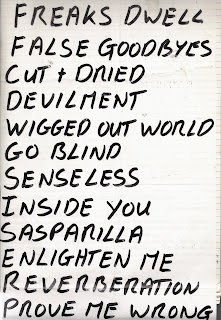 FREAKS DWELL
FALSE GOODBYES
CUT + DRIED
DEVILMENT
WIGGED OUT WORLD
GO BLIND
SENSELESS
INSIDE YOU
SASPARILLA
ENLIGHTEN ME
REVERBERATION
PROVE ME WRONG